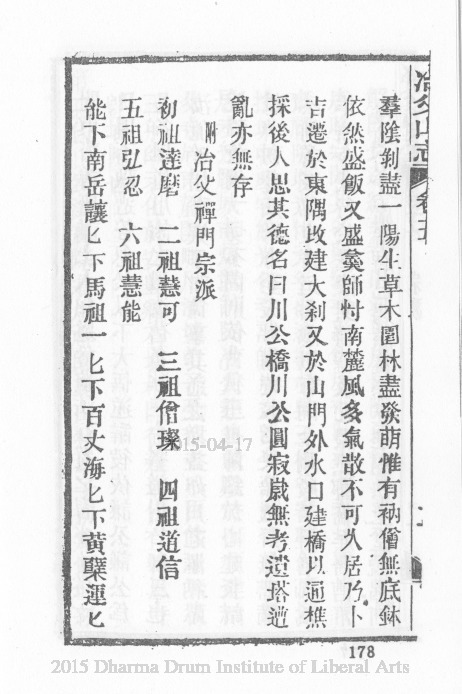 冶父山志 卷五
羣陰剝盡一陽生草木園林盡發萌惟有衲僧無底鉢
依然盛飯又盛羹師忖南麓風多氣散不可久居乃卜
吉遷於東隅改建大刹又於山門外水口建橋以通樵
採後人思其德名曰川公橋川公圓寂歲無考遺塔遭
亂亦無存
附冶父禪門宗派
初祖達磨 二祖慧可 三祖僧璨 四祖道信
五祖弘忍 六祖慧能
能下南岳讓匕下馬祖一匕下百丈海匕下黃蘗運匕
2015-04-17
178
2015 Dharma Drum Institute of Liberal Arts